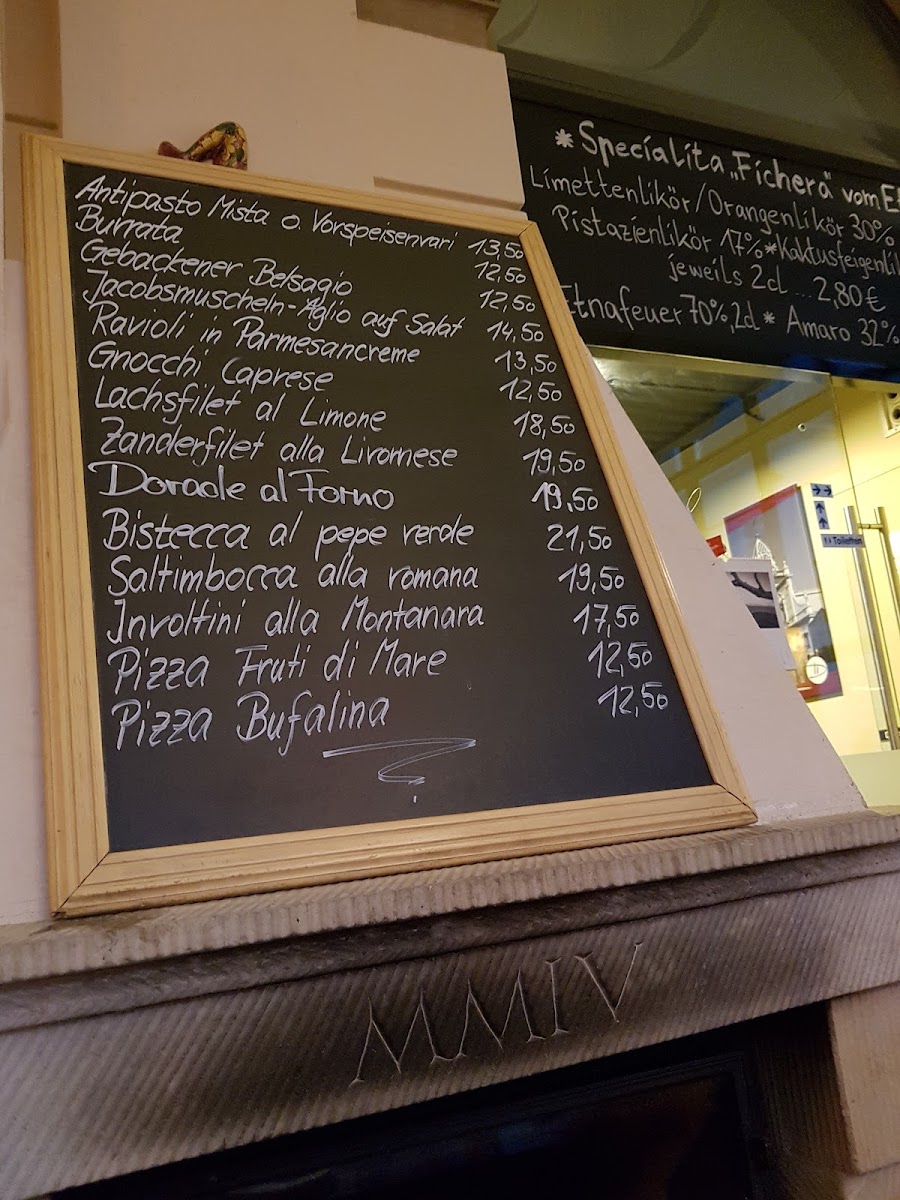 Antipasto Mista o. Vorspeisenvari 13,50
Burrata 12,50
Gebackener Belsagio 12,50
Jacobsmuscheln-Aglio auf Salat 14,50
Ravioli in Parmesancreme 13,50
Gnocchi Caprese 12,50
Lachsfilet al Limone 18,50
Zanderfilet alla Livornese 19,50
Dorade al Forno 19,50
Bistecca al pepe verde 21,50
Saltimbocca alla romana 19,50
Involtini alla Montanara 17,50
Pizza Fruti di Mare 12,50
Pizza Bufalina 12,50
* Specialita „Fichera" vom
Limettenlikör/Orangenlikör 30%
Pistazienlikör 17% * Kaktusfeigenli
jeweils 2cl ... 2,80 €
Etnafeuer 70%, 2cl * Amaro 32%
Toiletten
MMIV